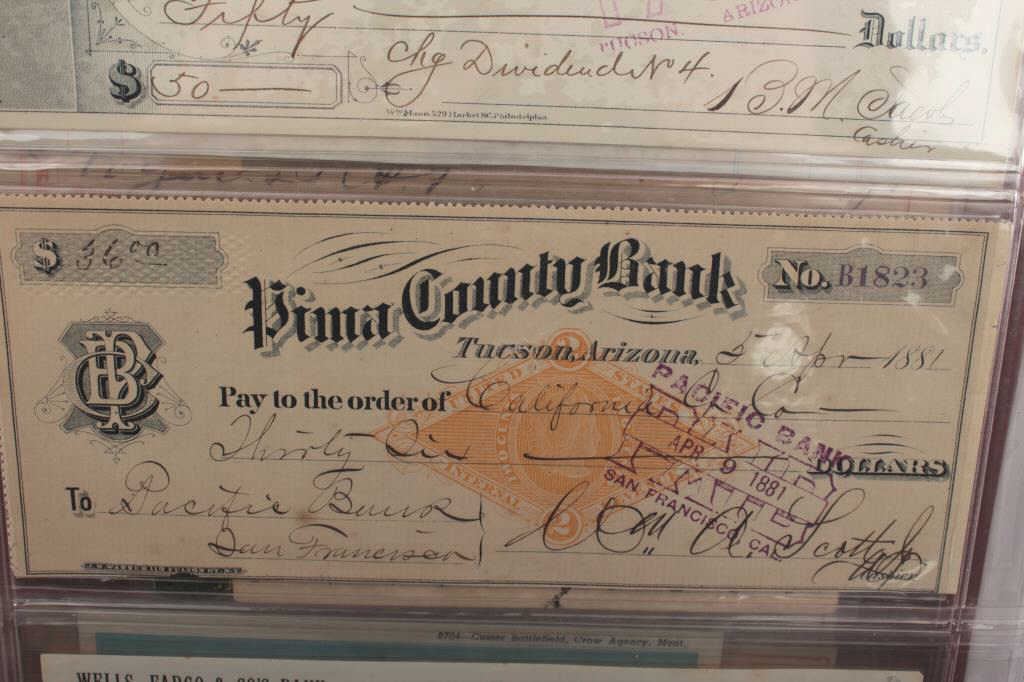 Fifty
Dollars.
TUCSON.
ARIZO
$ 50
Chg Dividend No 4.
B.M. Jacobs
Cashier
529 Market St. Philadelphia
$ 36 00
Pima County Bank
No. B1823
Tucson, Arizona, 5 Apr 1881
Pay to the order of California Co
Thirty Six
DOLLARS
UNITED STATES
INTERNAL
2
2
PACIFIC BANK
APR 9 1881
SAN FRANCISCO, CAL
To Pacific Bank
San Francisco
Wm A. Scott Jr
Cashier
PCB
8704. Custer Battlefield, Crow Agency, Mont.
WELLS, FARGO & CO'S BANK